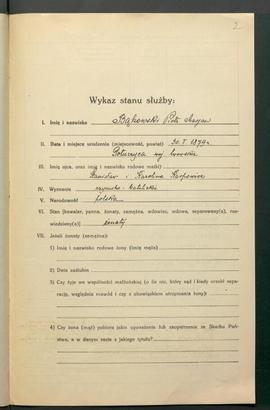 2
Wykaz stanu służby:
I. Imię i nazwisko Bąkowski Piotr
II. Data i miejsce urodzenia (miejscowość, powiat) 30. V. 1879
woj. lwowskie
III. Imię ojca, oraz imię i nazwisko rodowe matki
Stanisław i Karolina
IV. Wyznanie rzymsko-katolickie
V. Narodowość polska
VI. Stan (kawaler, panna, żonaty, zamężna, wdowiec, wdowa, separowany(a), roz-
wiedziony(a)) żonaty
VII. Jeżeli żonaty (zamężna):
1) Imię i nazwisko rodowe żony (imię męża)
2) Data zaślubin
3) Czy żyje we wspólności małżeńskiej (o ile nie, który sąd i kiedy orzekł sepa-
rację, względnie rozwód i czy z obowiązkiem utrzymania żony)
4) Czy żona (mąż) pobiera jakie uposażenie lub zaopatrzenie ze Skarbu Pań-
stwa, a w danym razie z jakiego tytułu?